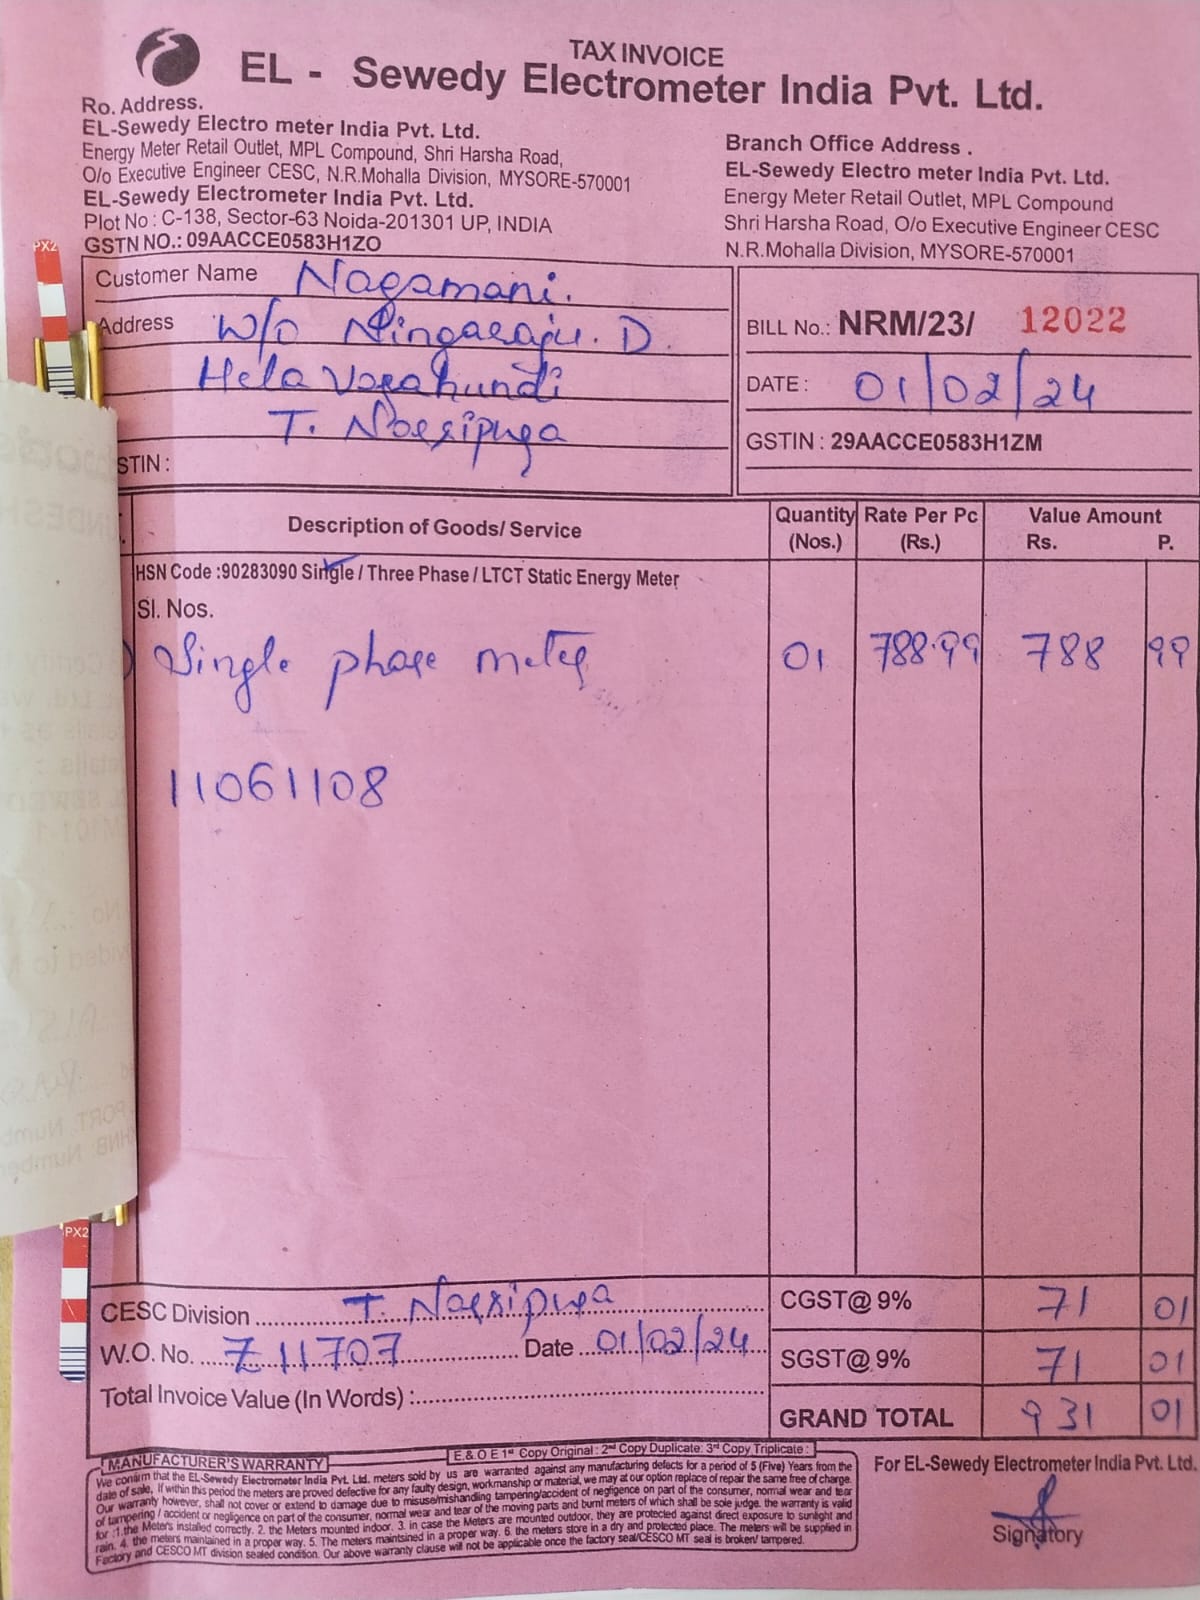 TAX INVOICE
EL - Sewedy Electrometer India Pvt. Ltd.
Ro. Address.
EL-Sewedy Electro meter India Pvt. Ltd.
Energy Meter Retail Outlet, MPL Compound, Shri Harsha Road,
O/o Executive Engineer CESC, N.R.Mohalla Division, MYSORE-570001
EL-Sewedy Electrometer India Pvt. Ltd.
Plot No : C-138, Sector-63 Noida-201301 UP, INDIA
GSTN NO.: 09AACCE0583H1ZO
Branch Office Address .
EL-Sewedy Electro meter India Pvt. Ltd.
Energy Meter Retail Outlet, MPL Compound
Shri Harsha Road, O/o Executive Engineer CESC
N.R.Mohalla Division, MYSORE-570001
PX2
Customer Name Nagamani.
Address W/o Ningaraju. D.
Hela Varahundi
T. Narsipura
STIN :
BILL No.: NRM/23/ 12022
DATE : 01/02/24
GSTIN : 29AACCE0583H1ZM
Description of Goods/ Service Quantity (Nos.) Rate Per Pc (Rs.) Value Amount Rs. P.
HSN Code :90283090 Single / Three Phase / LTCT Static Energy Meter
Sl. Nos.
) Single phase meter 01 788.99 788 99
11061108
PX2
CESC Division T. Narsipura
W.O. No. Z 11707 Date 01/02/24
Total Invoice Value (In Words) :
CGST@ 9% 71 01
SGST@ 9% 71 01
GRAND TOTAL 931 01
E.& O E 1st Copy Original : 2nd Copy Duplicate: 3rd Copy Triplicate :
MANUFACTURER'S WARRANTY
We confirm that the EL-Sewedy Electrometer India Pvt. Ltd. meters sold by us are warranted against any manufacturing defects for a period of 5 (Five) Years from the
date of sale. If within this period the meters are proved defective for any faulty design, workmanship or material, we may at our option replace of repair the same free of charge.
Our warranty however, shall not cover or extend to damage due to misuse/mishandling tampering/accident of negligence on part of the consumer, normal wear and tear
of tampering / accident or negligence on part of the consumer, normal wear and tear of the moving parts and burnt meters of which shall be sole judge. the warranty is valid
for :1.the Meters installed correctly. 2. the Meters mounted indoor. 3. in case the Meters are mounted outdoor, they are protected against direct exposure to sunlight and
rain. 4. the meters maintained in a proper way. 5. The meters maintsined in a proper way. 6. the meters store in a dry and protected place. The meters will be supplied in
Factory and CESCO MT division sealed condition. Our above warranty clause will not be applicable once the factory seal/CESCO MT seal is broken/ tampered.
For EL-Sewedy Electrometer India Pvt. Ltd.
Signatory